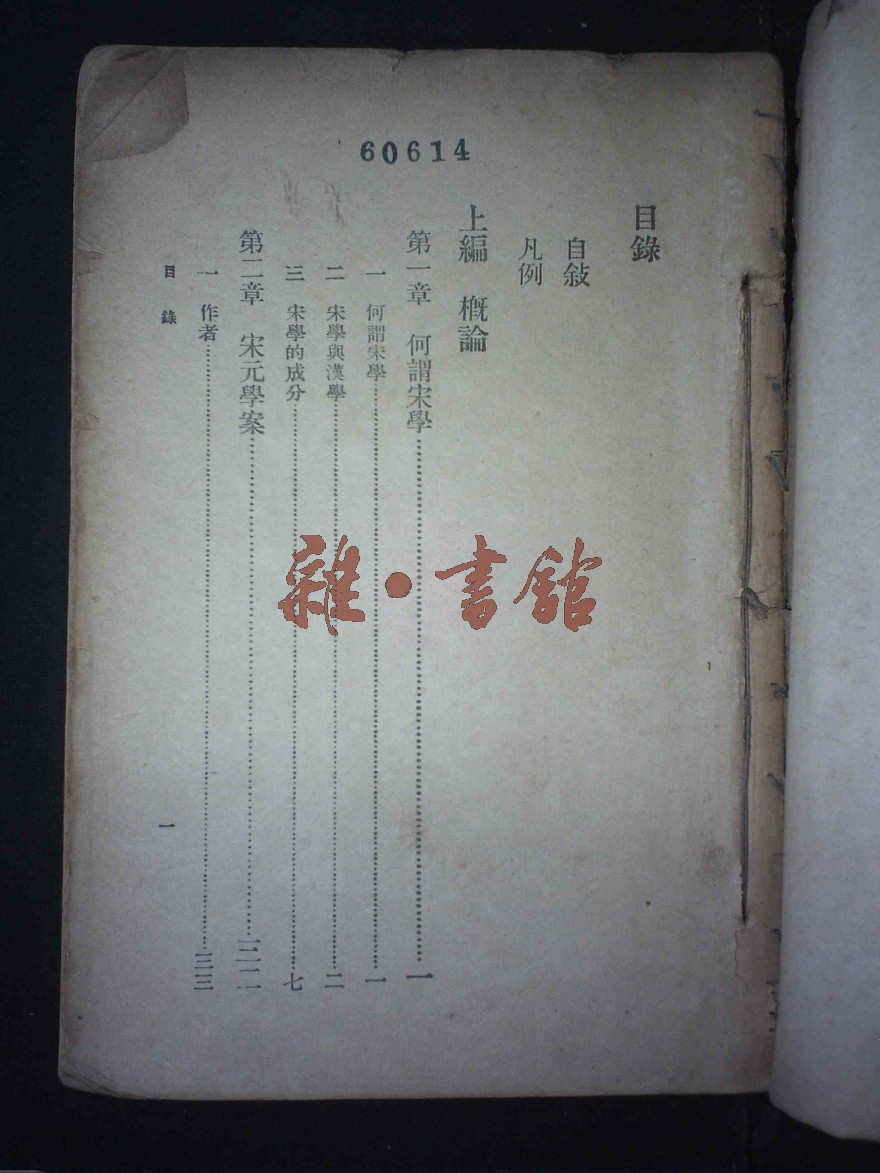 60614
目錄
自敍
凡例
上編 概論
第一章 何謂宋學……一
一 何謂宋學……一
二 宋學與漢學……二
三 宋學的成分……七
第二章 宋元學案……三二
一 作者……三三
目錄
一
雜·書館